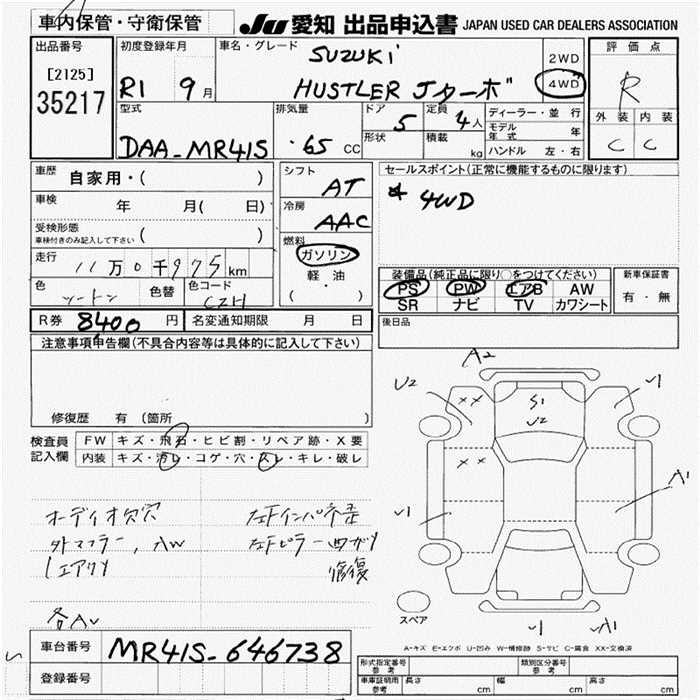 車内保管・守衛保管
JU 愛知 出品申込書 JAPAN USED CAR DEALERS ASSOCIATION
出品番号
[2125]
35217
初度登録年月
R1 9月
車名・グレード
SUZUKI
HUSTLER Jターボ
2WD
4WD
評価点
R
外装 内装
C C
型式
DAA-MR41S
排気量
.65 CC
ドア
5
形状
定員
4人
積載
kg
ディーラー・並行
モデル年式 年
ハンドル 左・右
車歴
自家用・( )
車検
年 月( 日)
受検形態
車検付きのみ記入して下さい ( )
走行
11万0千975km
色
ツートン
色替
色コード
CZH
シフト
AT
冷房
AAC
燃料
ガソリン
軽・油
( ・ )
セールスポイント(正常に機能するものに限ります)
* 4WD
装備品(純正品に限り○をつけてください)
PS PW エアB AW
SR ナビ TV カワシート
新車保証書
有・無
R券 8400 円
名変通知期限 月 日
後日品
注意事項申告欄(不具合内容等は具体的に記入して下さい)
修復歴 有(箇所
検査員記入欄
FW キズ・飛石・ヒビ割・リペア跡・X要
内装 キズ・汚レ・コゲ・穴・スレ・キレ・破レ
オーディオ欠穴
外マフラー, AW
1エアリク
各AU
左Fインパネ歪
左Fピラー凹ガリ
修復
A2
U2
XX
S1
U2
√1
XX
√1
A1
√1
A1
スペア
A-キズ E-エクボ U-凹み W-補修跡 S-サビ C-腐食 XX-交換済
車台番号
MR41S-646738
登録番号
形式指定番号
参考
類別区分番号
参考
車庫証明用
参考
長さ cm
幅 cm
高さ cm